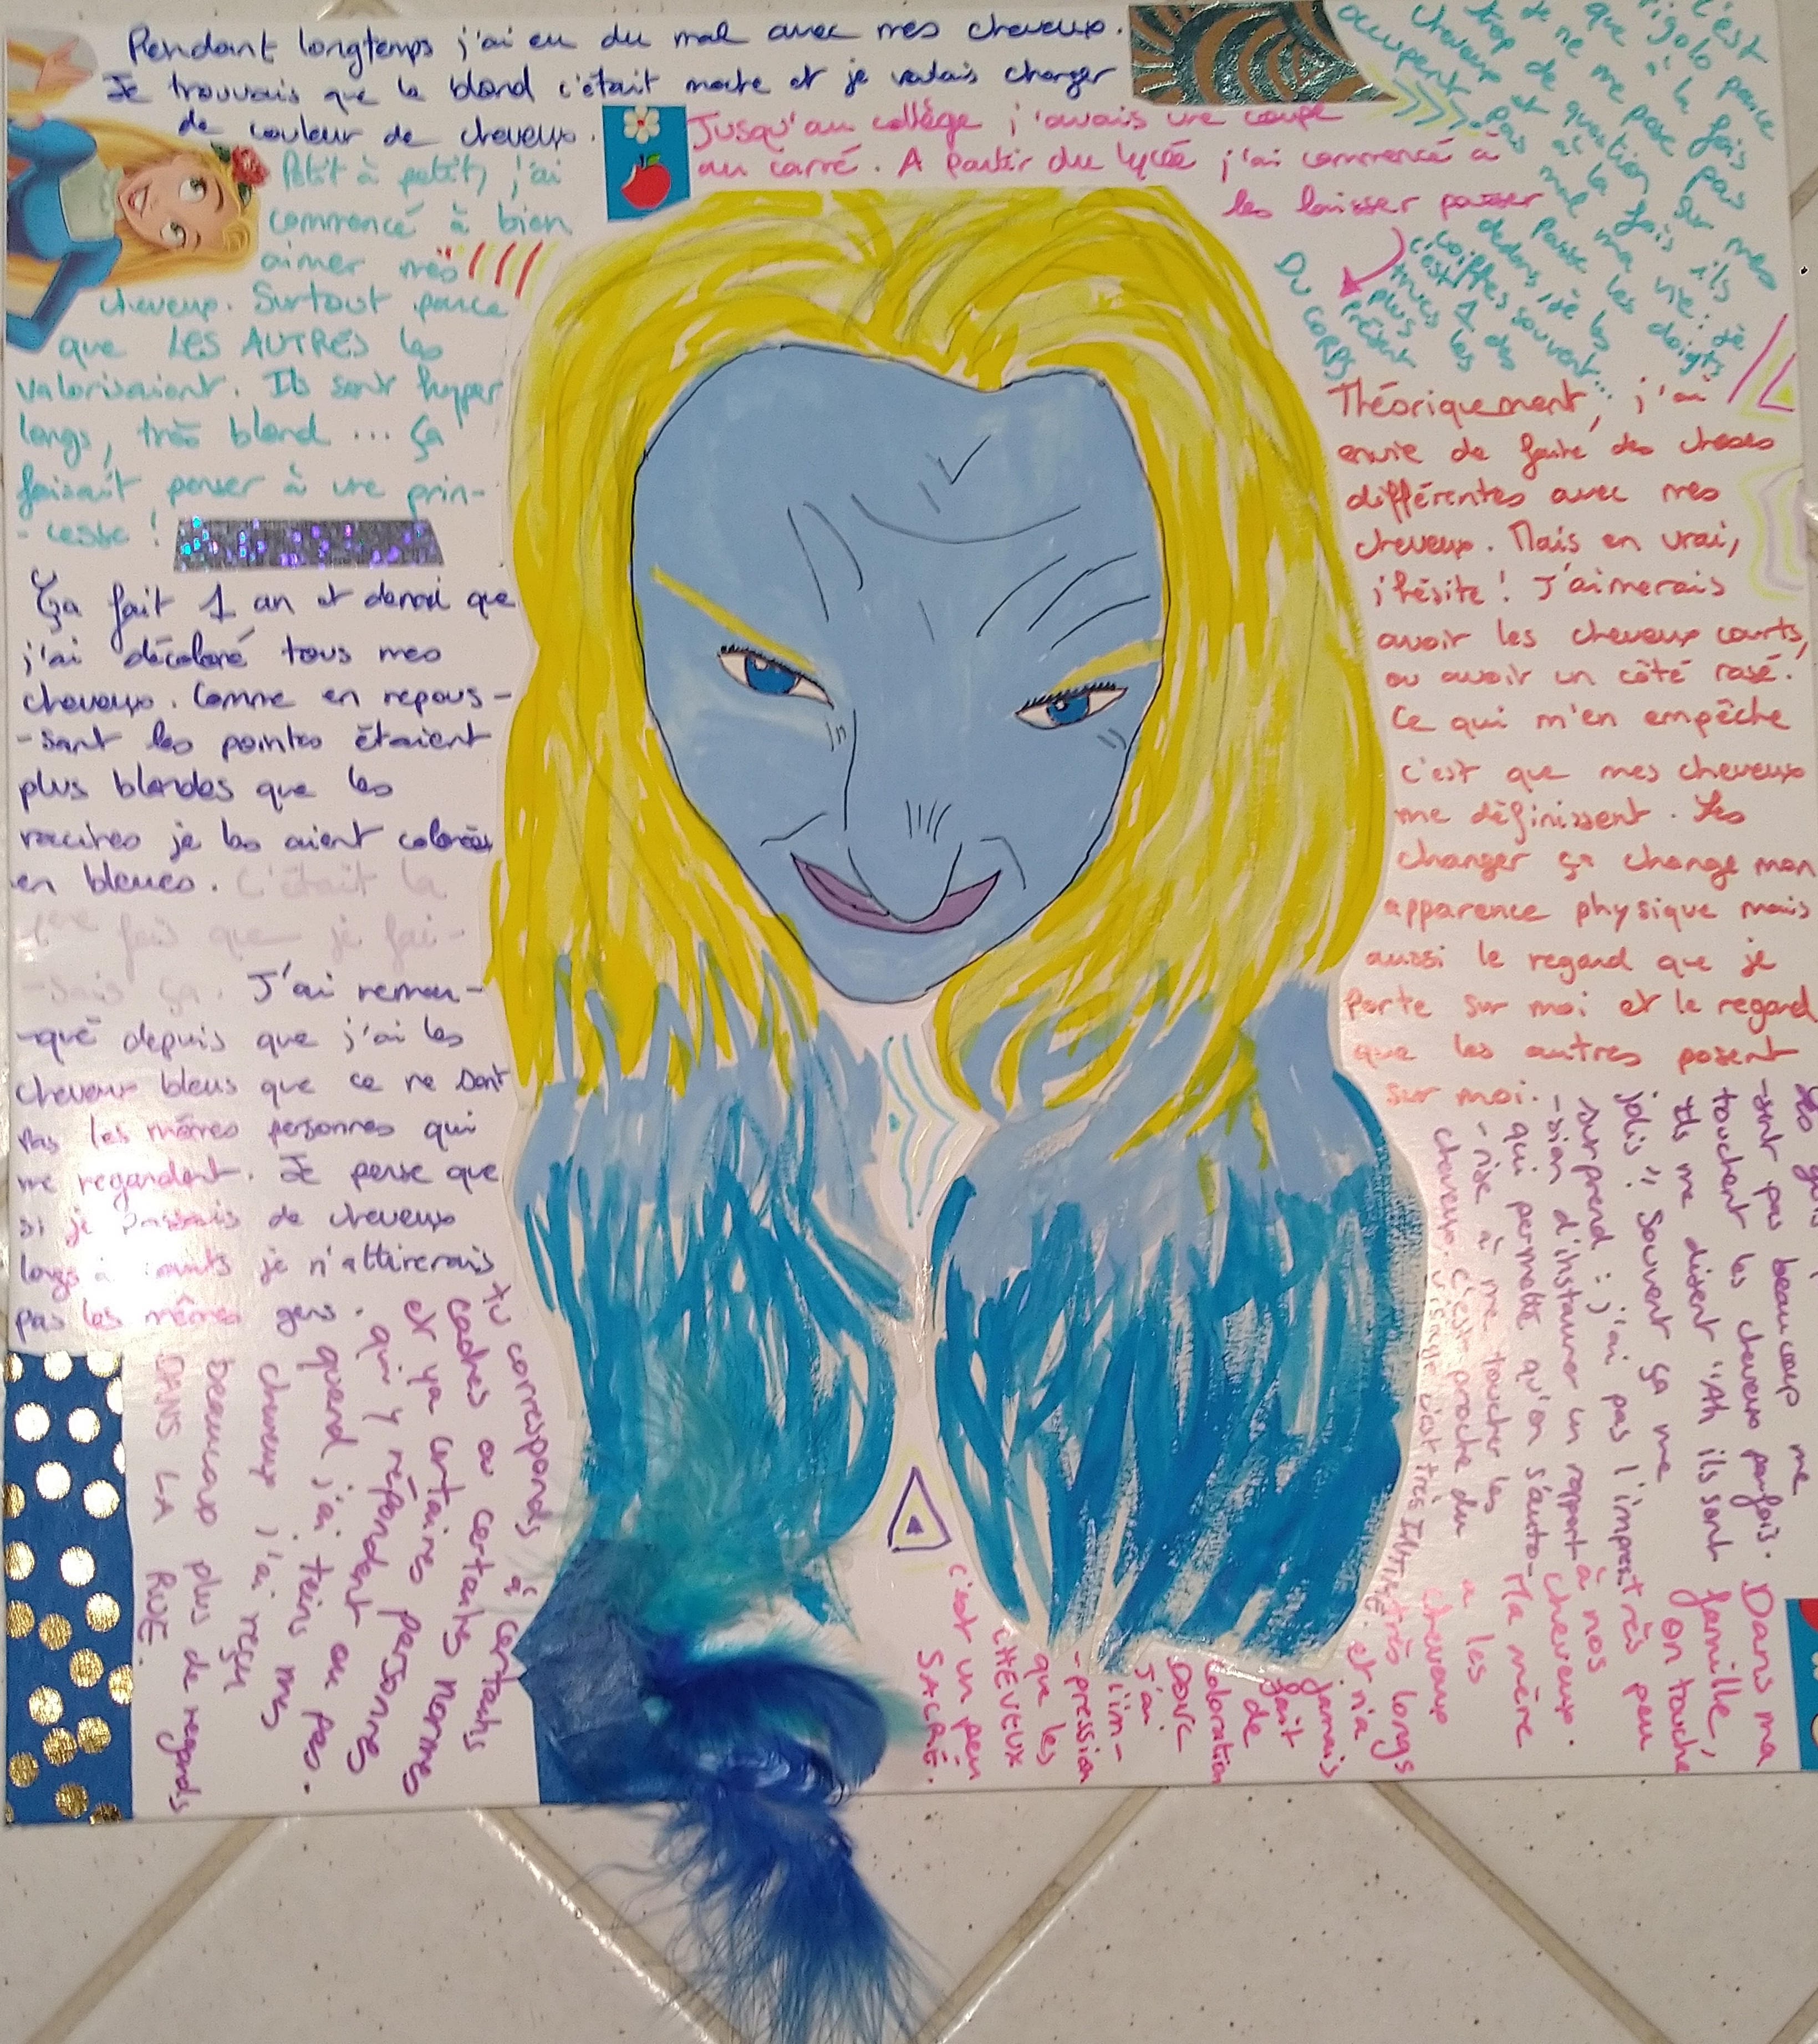 Pendant longtemps j'ai eu du mal avec mes cheveux.
Je trouvais que le blond c'était moche et je voulais changer
de couleur de cheveux.
Jusqu'au collège j'avais une coupe
au carré. A partir du lycée j'ai commencé à
les laisser pousser
Petit à petit, j'ai
commencé à bien
aimer mes
cheveux. Surtout parce
que LES AUTRES les
valorisaient. Ils sont hyper
longs, très blond ... ça
faisait penser à une prin-
-cesse !
Ça fait 1 an et demi que
j'ai décoloré tous mes
cheveux. Comme en repous-
-sant les pointes étaient
plus blondes que les
racines je les
en bleues. C'était la
1ère fois que je fai-
-sais ça. J'ai remar-
-qué depuis que j'ai les
cheveux bleus que ce ne sont
pas les mêmes personnes qui
me regardent. Je pense que
si je passais de cheveux
longs à courts je n'attirerais
pas les mêmes gens.
tu corresponds à certains
cadres ou certaines normes
et ya certaines personnes
qui y répondent ou pas.
quand j'ai teins mes
cheveux j'ai reçu
beaucoup plus de regards
DANS LA RUE.
C'est
rigolo parce
que à la fois
je ne me pose pas
trop de question sur mes
cheveux et à la fois ils
occupent pas mal ma vie : je
passe les doigts
dedans, je les
coiffes souvent...
c'est 1 des
trucs les
plus
présent
DU CORPS
Théoriquement, j'ai
envie de faire des choses
différentes avec mes
cheveux. Mais en vrai,
j'hésite ! J'aimerais
avoir les cheveux courts,
ou avoir un côté rasé.
Ce qui m'en empêche
c'est que mes cheveux
me définissent. Les
changer ça change mon
apparence physique mais
aussi le regard que je
porte sur moi et le regard
que les autres posent
sur moi.
-sent pas beaucoup me
touchent les cheveux parfois.
Ils me disent "Ah ils sont
jolis". Souvent ça me
surprend : j'ai pas l'impres-
-sion d'instaurer un rapport
qui permette qu'on s'auto-
-rise à me toucher les
cheveux. C'est proche du
visage c'est très INTIME.
Dans ma
famille,
on touche
très peu
à nos
cheveux.
Ma mère
a les
cheveux
très longs
et n'a
jamais
fait
de
coloration
DONC
j'ai
l'im-
-pression
que les
CHEVEUX
c'est un peu
SACRÉ.